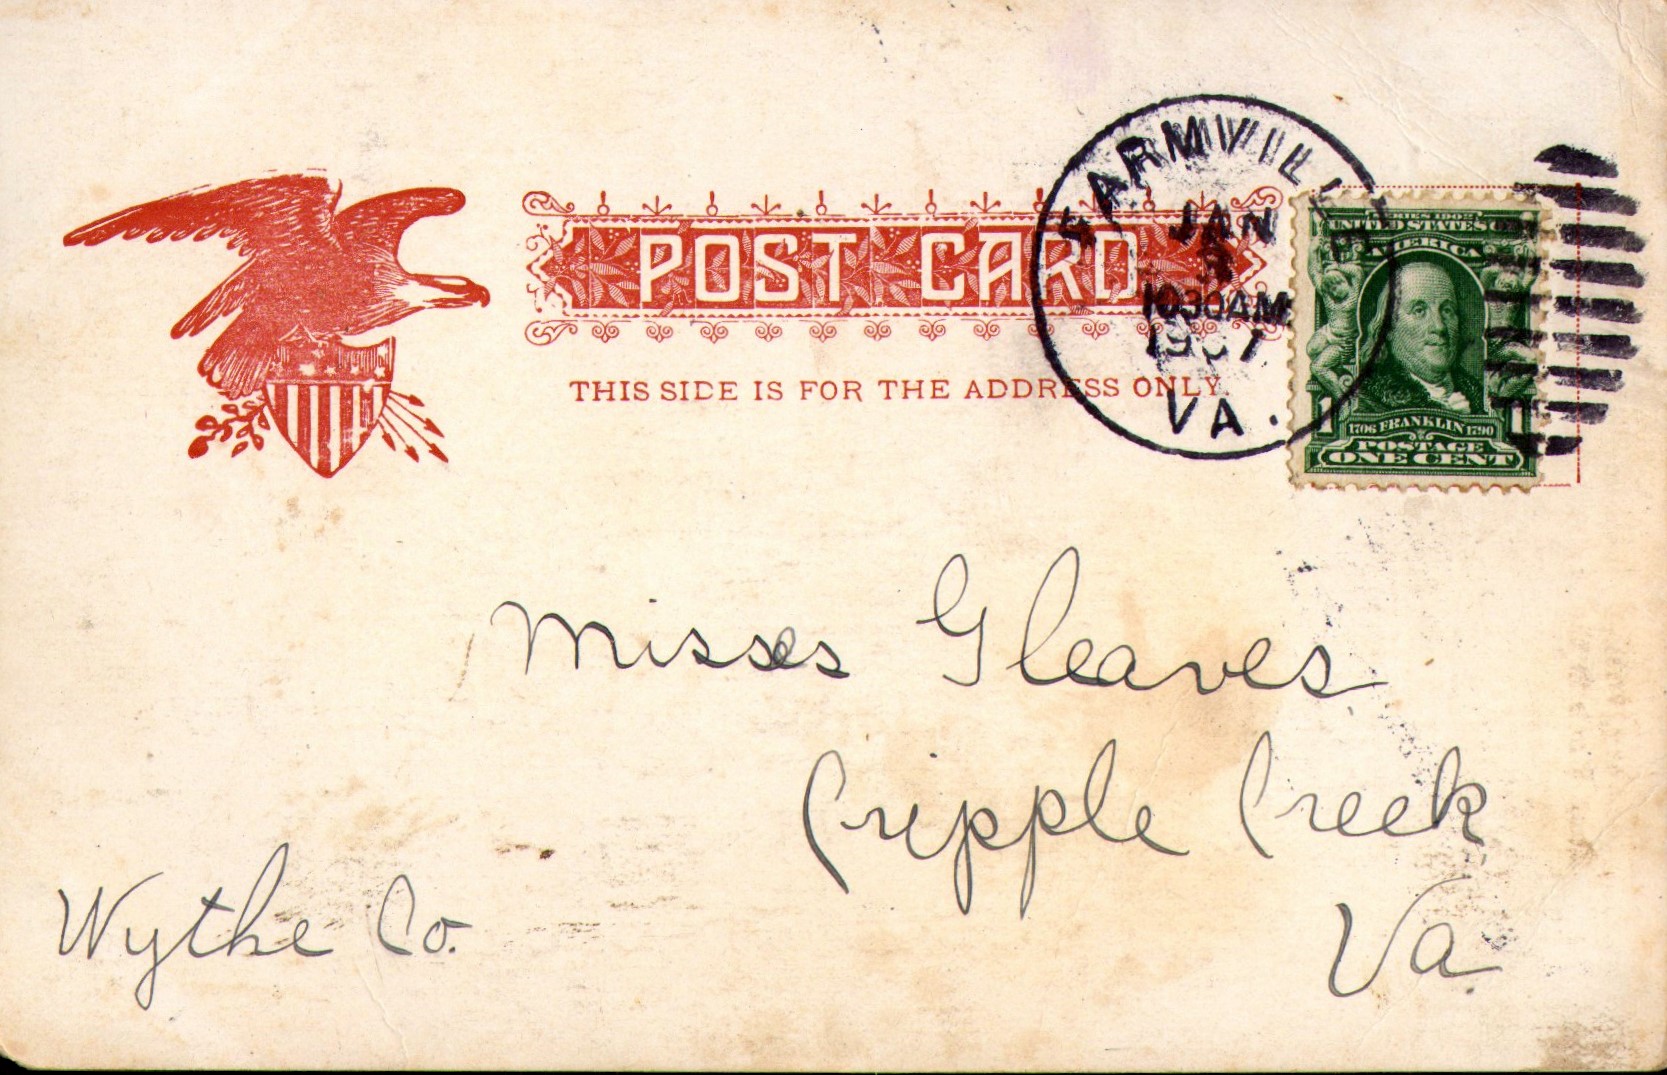 POST CARD
THIS SIDE IS FOR THE ADDRESS ONLY.
FARMVILLE
JAN
10 30 AM
1907
VA.
SERIES 1902
UNITED STATES OF
AMERICA
1 1
1706 FRANKLIN 1790
POSTAGE
ONE CENT
Misses Gleaves
Cripple Creek
Wythe Co.
Va